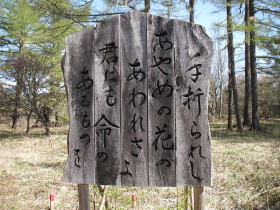 手折られし
あやめの花の
あわれさよ
君にも命の
あるものを